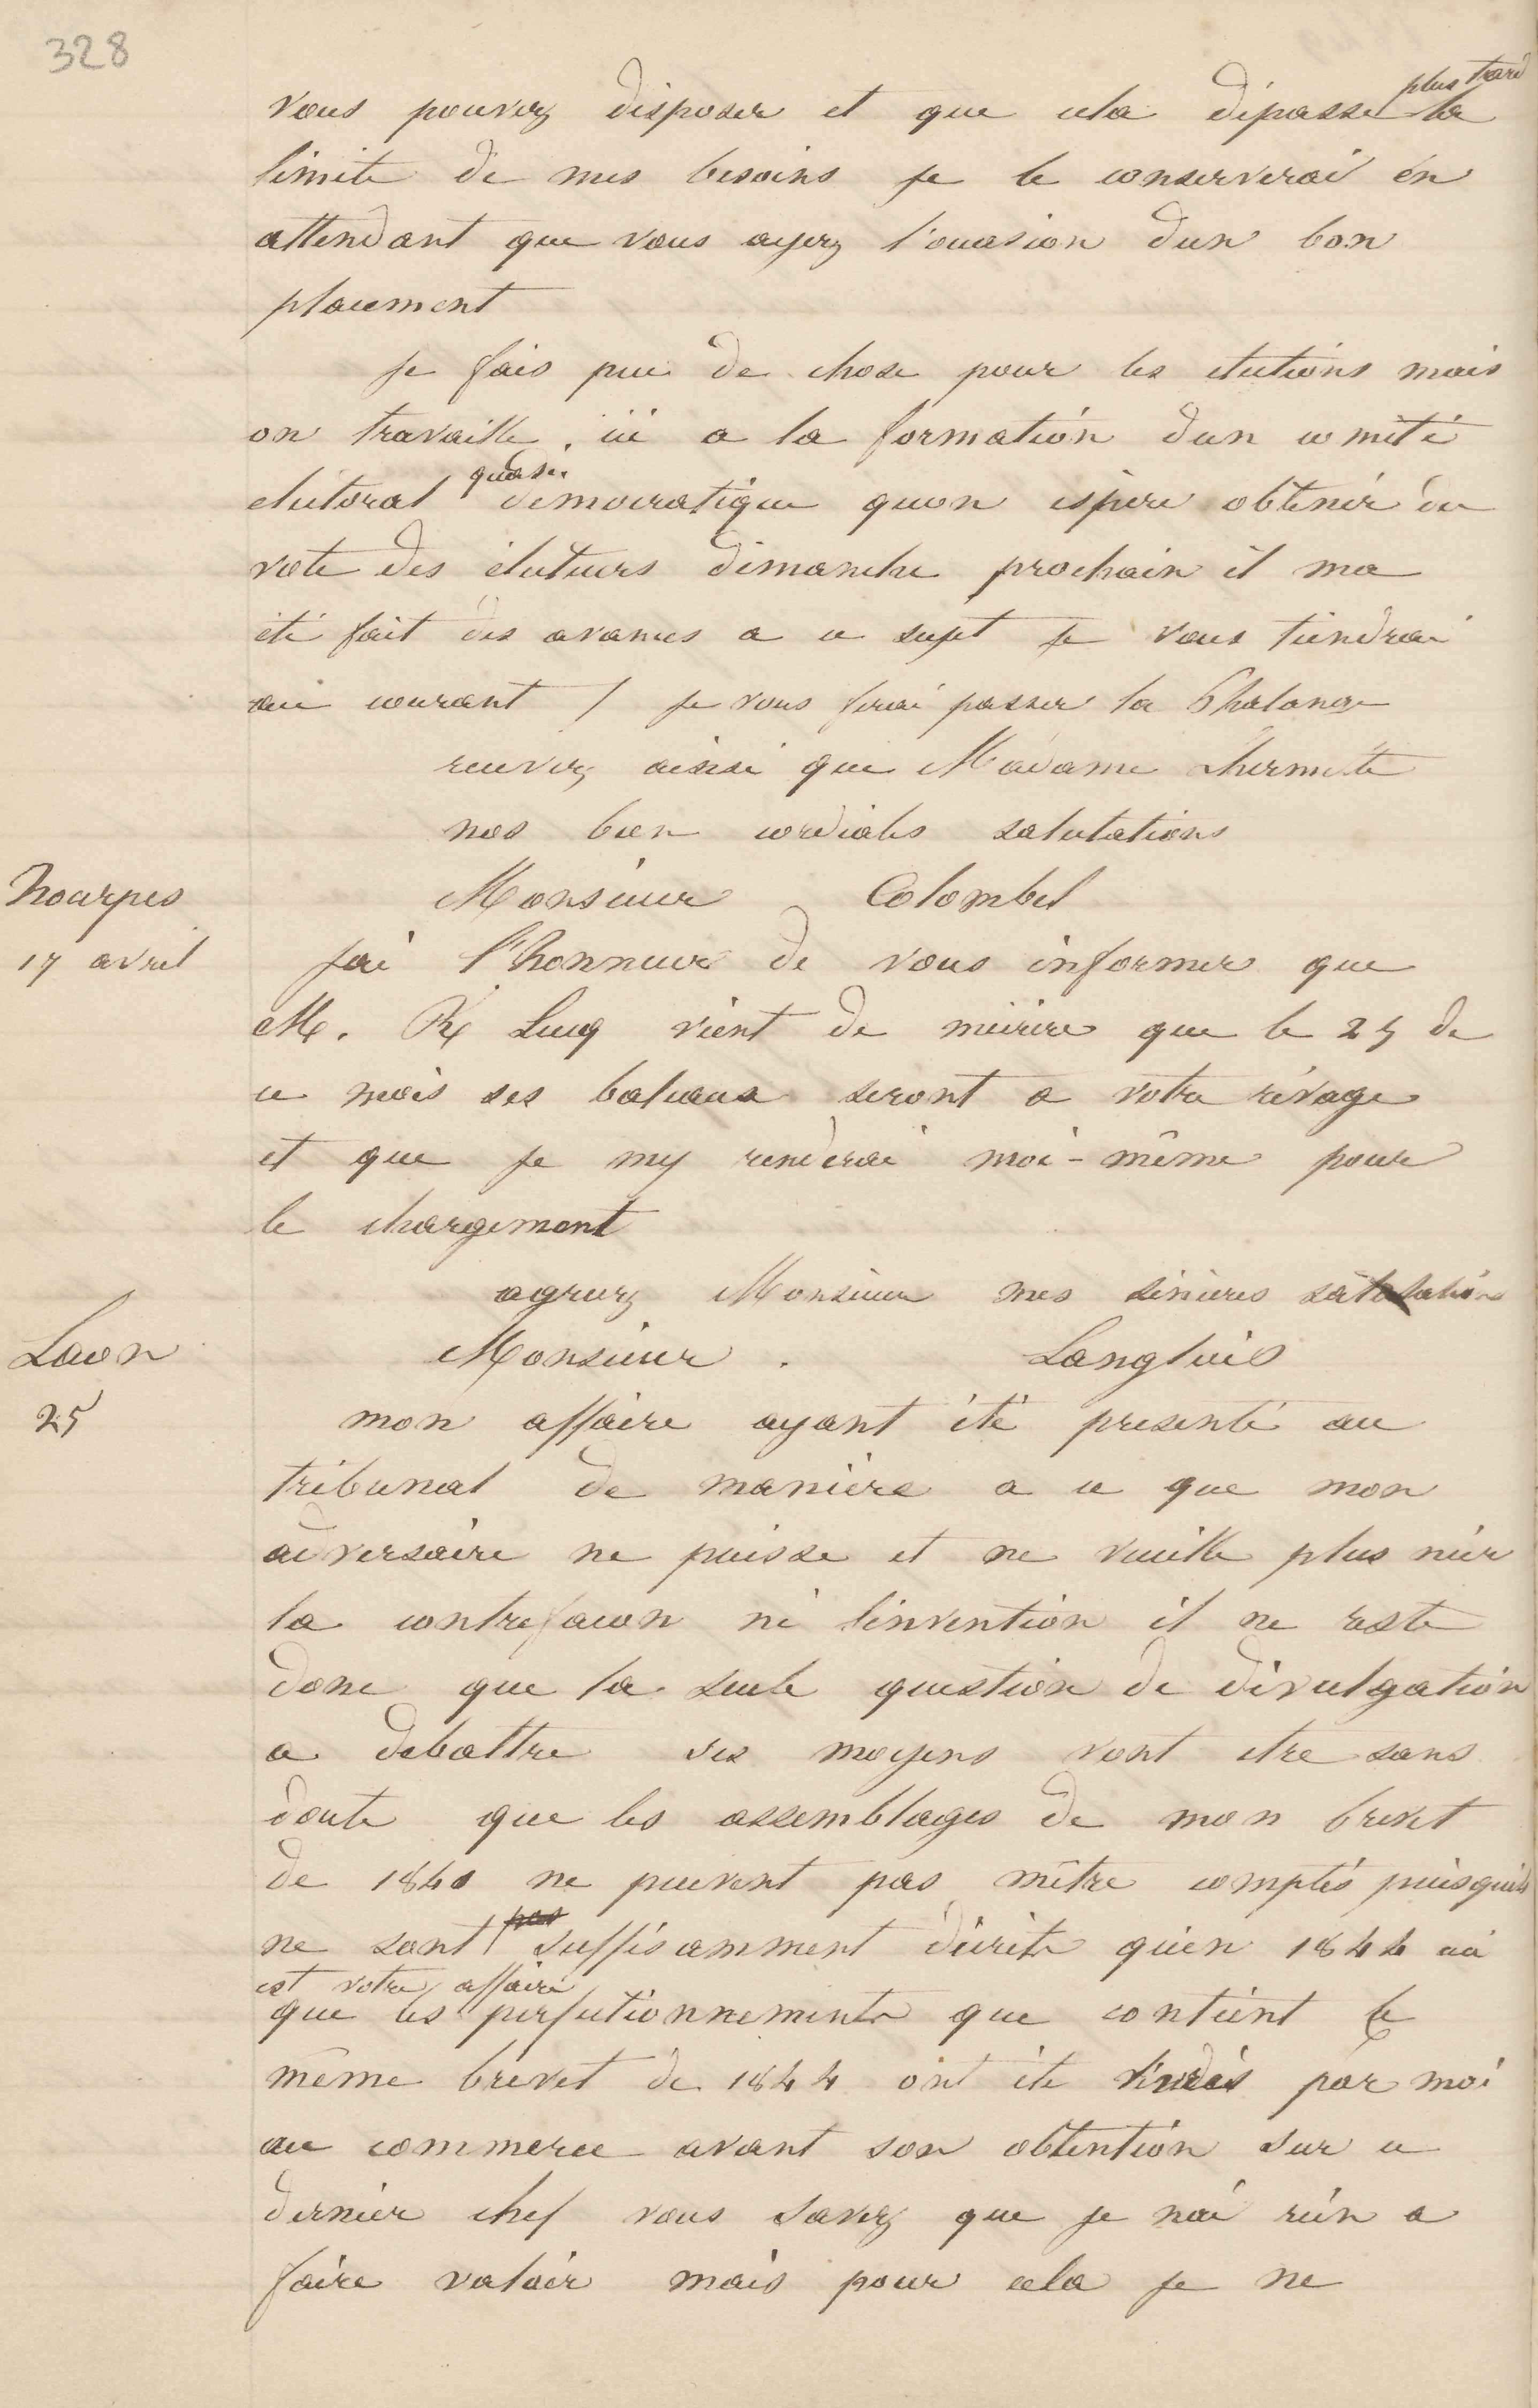 328
vous pouvez disposer et que cela dépasse plus tard la
limite de mes besoins je le conserverai en
attendant que vous ayez l'occasion dun bon
placement
je fais peu de chose pour les elections mais
on travaille ici a la formation dun comité
electoral quasi democratique quon espere obtenir du
vote des électeurs dimanche prochain il ma
été fait des avances a ce sujet je vous tiendrai
au courant / je vous ferai passer la Phalange
recevez ainsi que Madame Lhermitte
nos bien cordiales salutations
Monsieur Colombel
Nourpes
17 avril
jai l'honneur de vous informer que
M. Lucq vient de mécrire que le 25 de
ce mois ses bateaux seront a votre rivage
et que je my renderai moi-même pour
le chargement
agreez Monsieur mes sincères salutations
Laon
25
Monsieur . Langlois
mon affaire ayant été presenté au
tribunal de manière a ce que mon
adversaire ne puisse et ne veuille plus nier
la contrefacon ni linvention il ne reste
donc que la seule question de divulgation
a debattre ses moyens vont etre sans
doute que les assemblages de mon brevet
de 1840 ne peuvent pas mêtre comptés puisquils
ne sont pas suffisamment décrits quen 1844 ceci
est votre affaire
que les perfectionnements que contient le
même brevet de 1844 ont été livrés par moi
au commerce avant son obtention sur ce
dernier chef vous savez que je nai rien a
faire valoir mais pour cela je ne